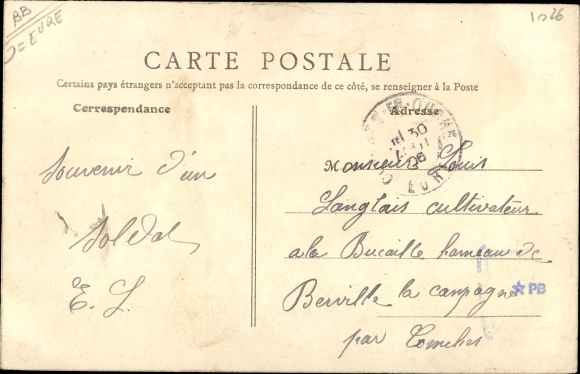 BB
D= EURE
1026
CARTE POSTALE
Certains pays étrangers n'acceptant pas la correspondance de ce côté, se renseigner à la Poste
Correspondance
Adresse
30
06
EURE
Souvenir d'un
Soldat
E. L.
Monsieur Louis
Langlais cultivateur
a la Bucaille hameau de
Berville la campagne
PB
par